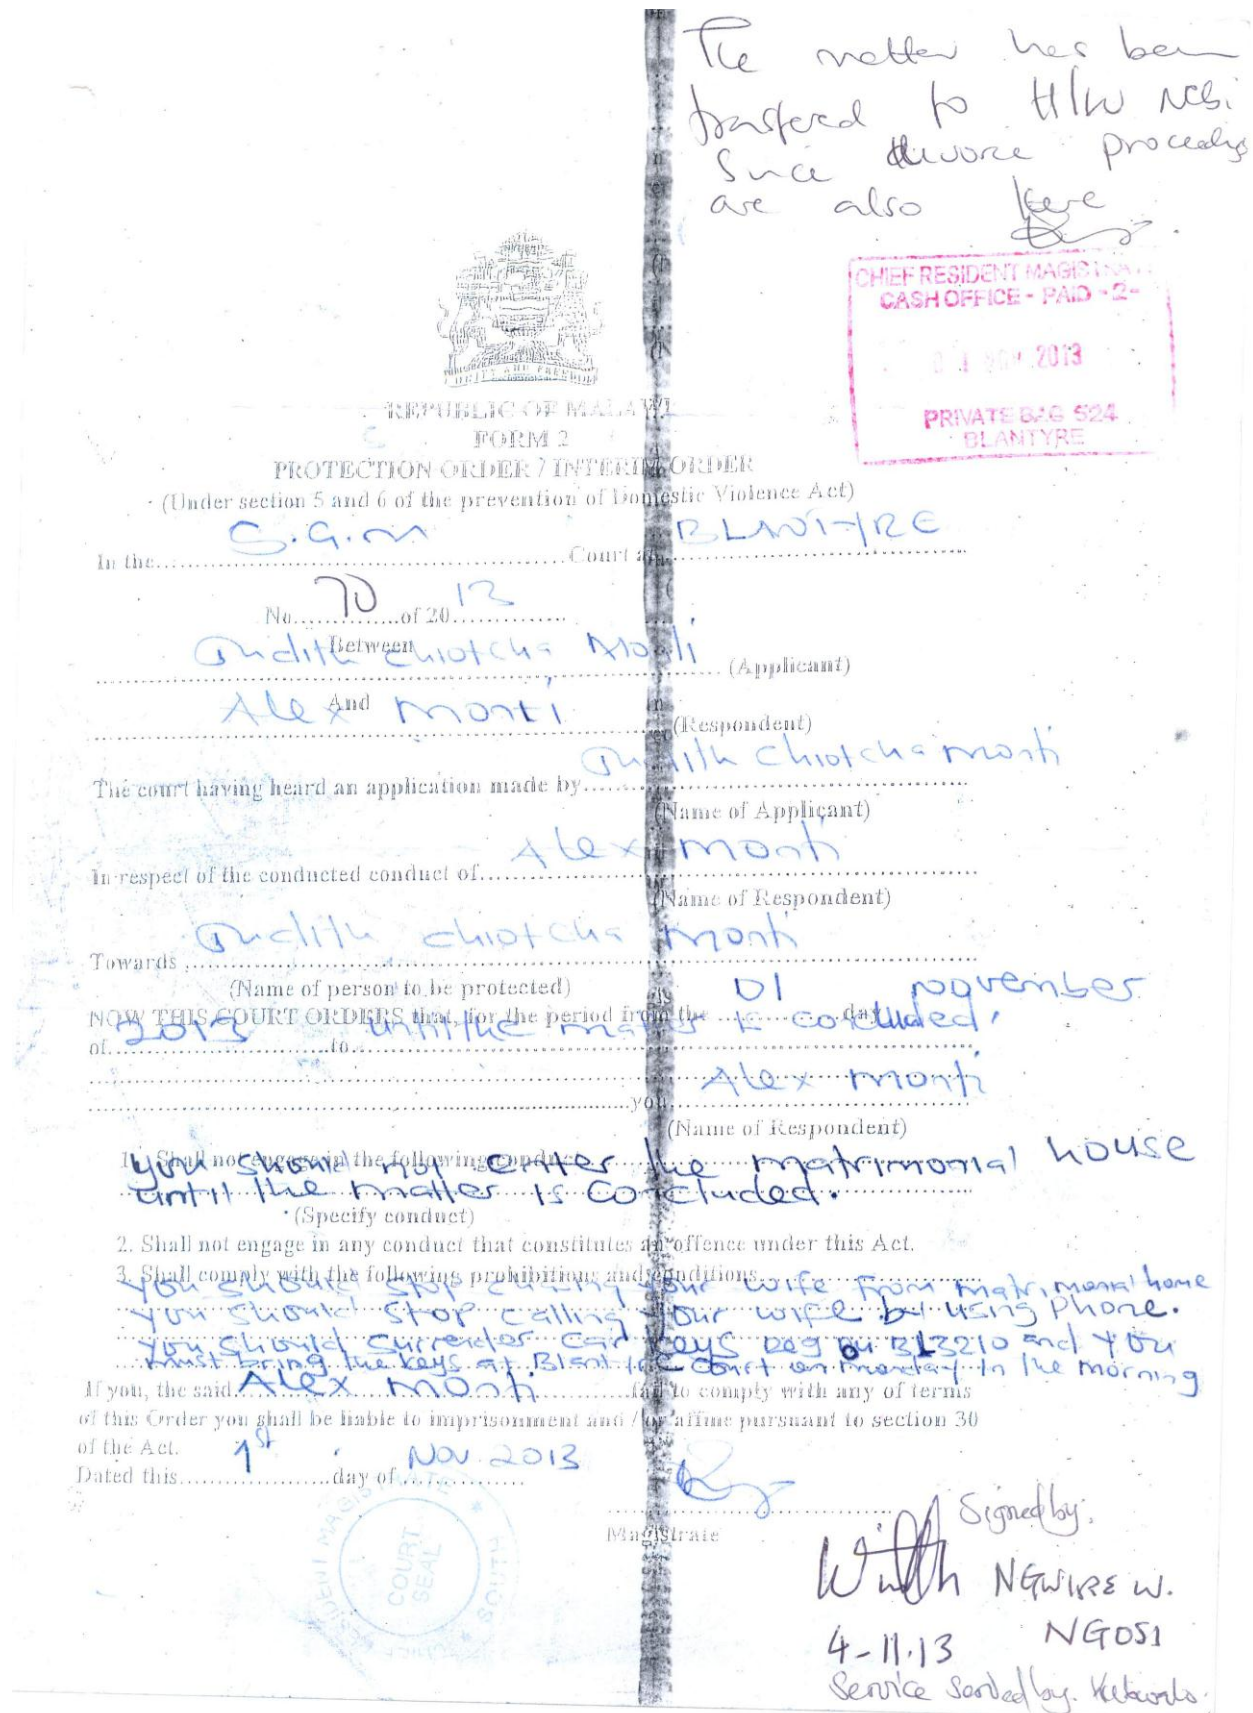 The matter has been
transfered to H/W
Since divorce proceedings
are also here
CHIEF RESIDENT MAGISTRATE
CASH OFFICE - PAID - 2 -
2013
PRIVATE BAG 524
BLANTYRE
UNITY AND FREEDOM
REPUBLIC OF MALAWI
FORM 2
PROTECTION ORDER / INTERIM ORDER
(Under section 5 and 6 of the prevention of Domestic Violence Act)
In the S.G.M Court at BLANTYRE
No. 70 of 2013
Between
Judith Chiotcha Monti (Applicant)
And
Alex Monti (Respondent)
The court having heard an application made by Judith Chiotcha Monti
(Name of Applicant)
In respect of the conducted conduct of Alex Monti
(Name of Respondent)
Towards Judith Chiotcha Monti
(Name of person to be protected)
NOW THIS COURT ORDERS that, for the period from the 01 day November
of 2013 to until the matter is concluded,
you Alex Monti
(Name of Respondent)
1. Shall not engage in the following conduct
You should not enter the matrimonial house
until the matter is concluded.
(Specify conduct)
2. Shall not engage in any conduct that constitutes an offence under this Act.
3. Shall comply with the following prohibitions and conditions
You should stop chasing your wife from matrimonial home
You should stop calling your wife by using phone.
You should surrender car keys Reg BL3210 and you
must bring the keys at Blantyre court on monday in the morning
If you, the said Alex Monti fail to comply with any of terms
of this Order you shall be liable to imprisonment and / or affine pursuant to section 30
of the Act.
Dated this 1st day of Nov. 2013
Magistrate
COURT
SEAL
SOUTH
Signed by:
NGWIRE W.
4-11.13 NGOSI
Service served by.